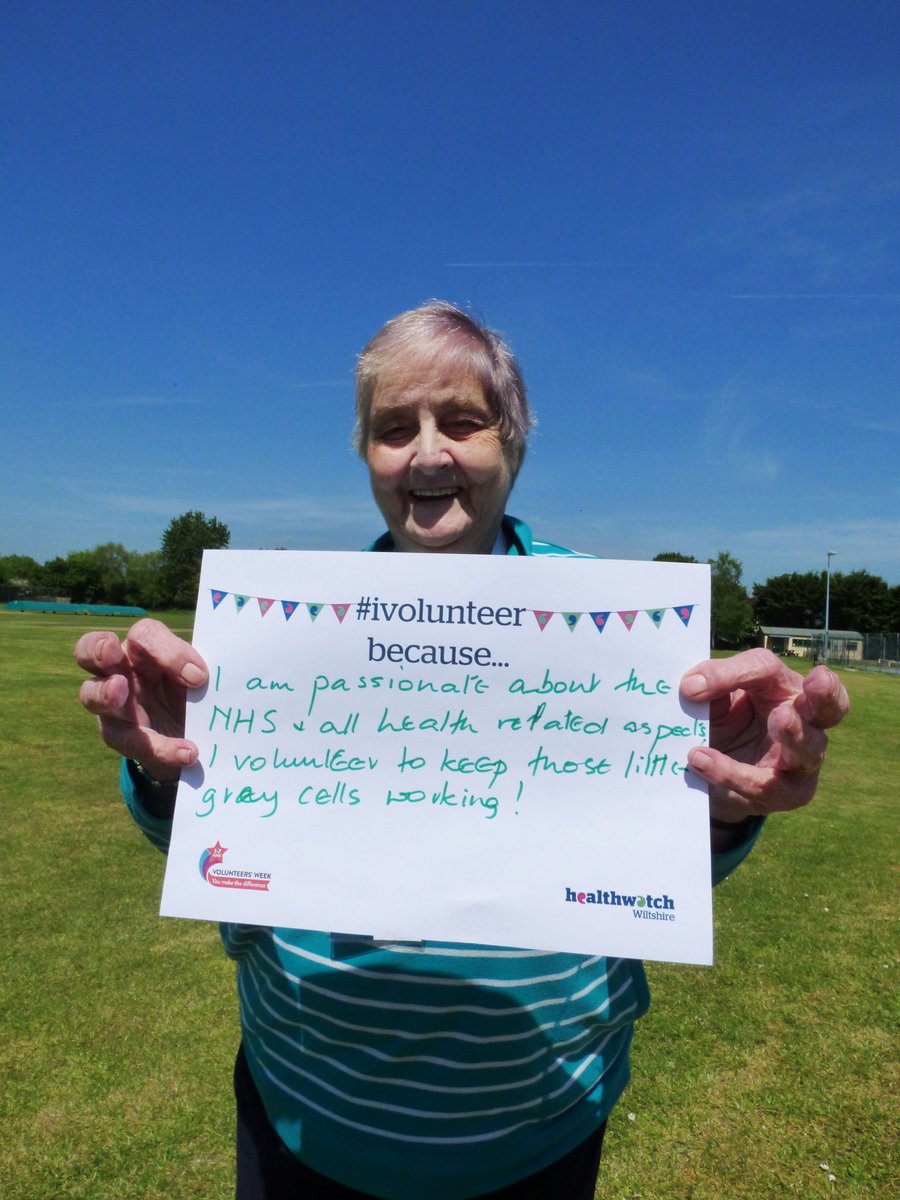 #ivolunteer
because...
I am passionate about the
NHS + all health related aspects,
I volunteer to keep those little
grey cells working!
1-7
JUNE
VOLUNTEERS' WEEK
You make the difference
healthwatch
Wiltshire